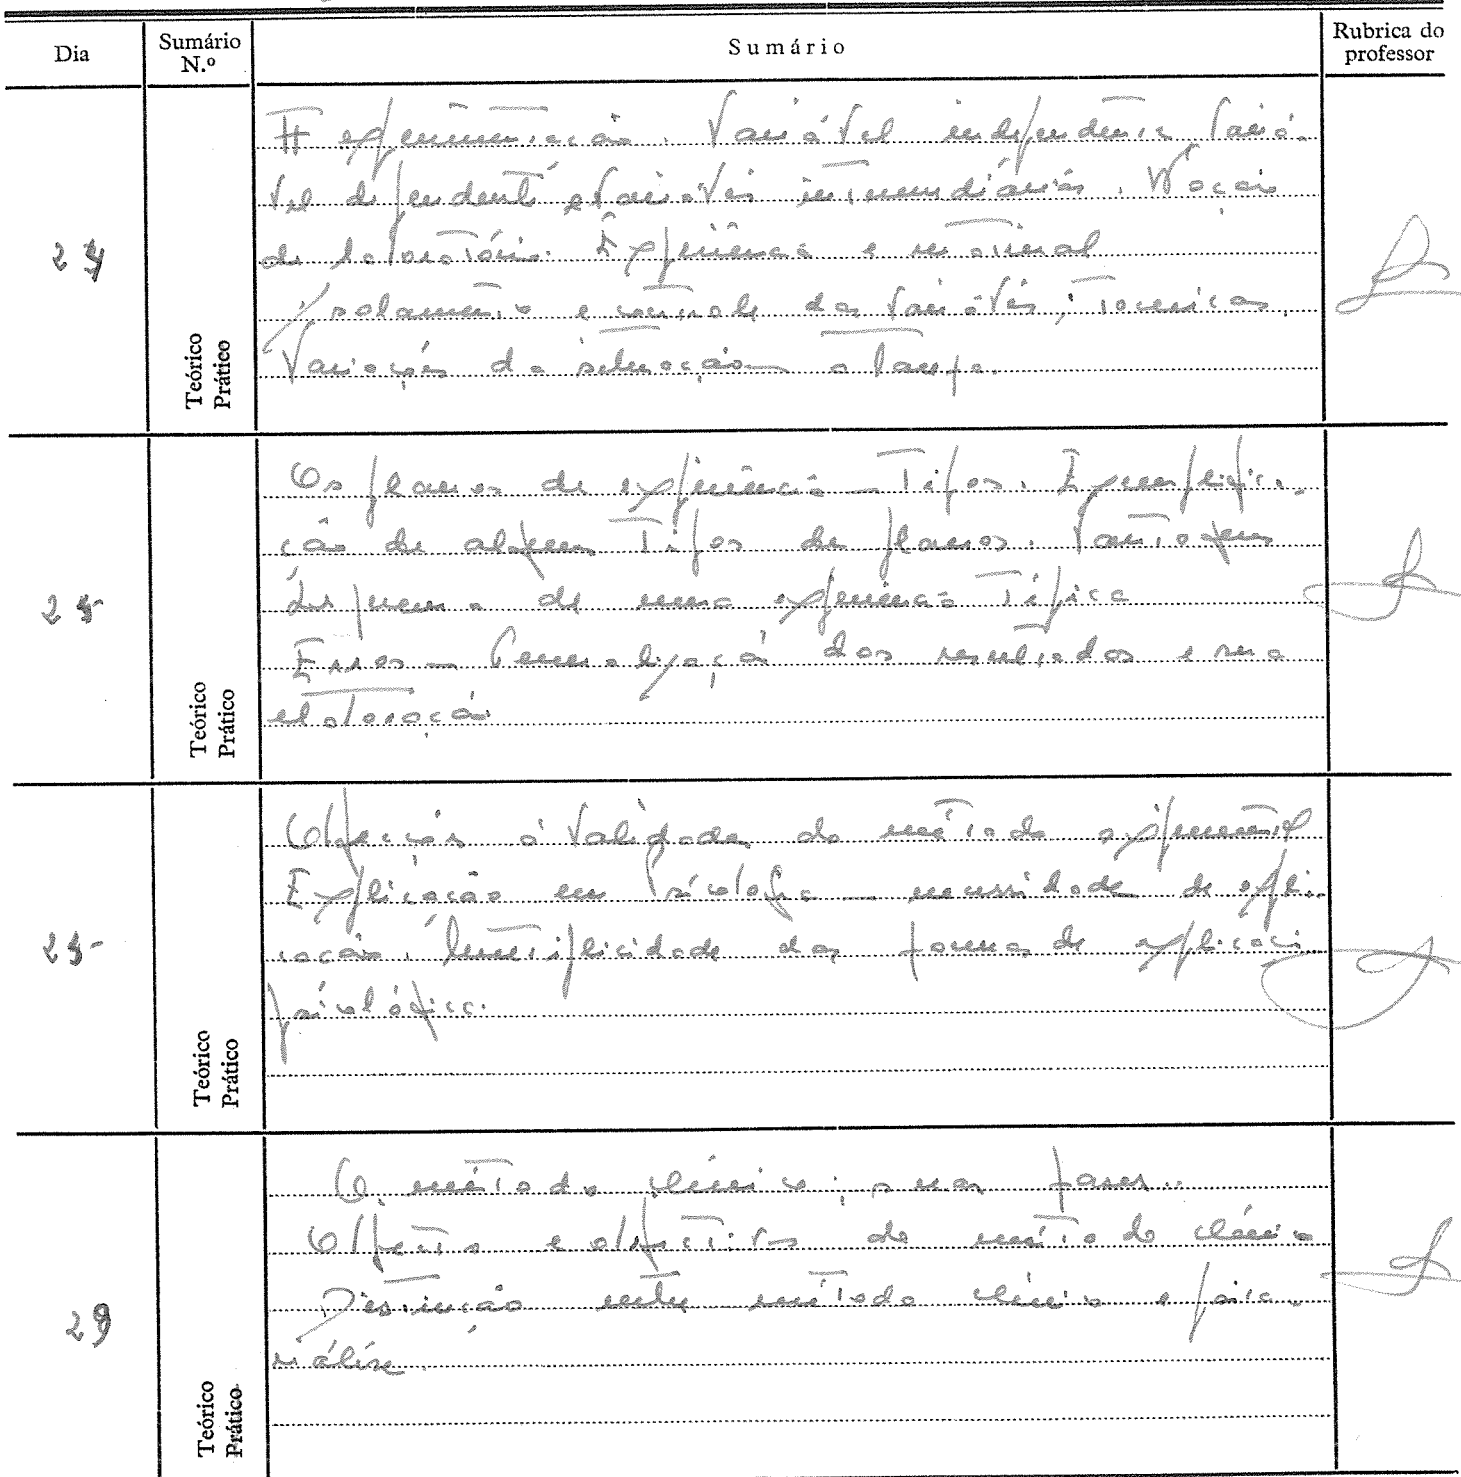 Dia
Sumário N.º
Sumário
Rubrica do professor
24
A experimentação. Variável independente variá-
vel dependente e variáveis intermediárias. Noção
de laboratório. Experiência e material
Isolamento e controle das variáveis; técnicas.
Variações da situação
Teórico
Prático
Os planos de experiência — Tipos. Exemplifica-
ção de alguns tipos de planos. Vantagens
Esquema de uma experiência típica
Erros — Generalização dos resultados e sua
elaboração
Teórico
Prático
Objecções à validade do método experimental
Explicação em Psicologia — necessidade de expli-
cação. Multiplicidade das formas de explicação
psicológica.
Teórico
Prático
29
O método clínico; suas fases.
Objecto e objectivos do método clínico
Distinção entre método clínico e psica-
nálise.
Teórico
Prático